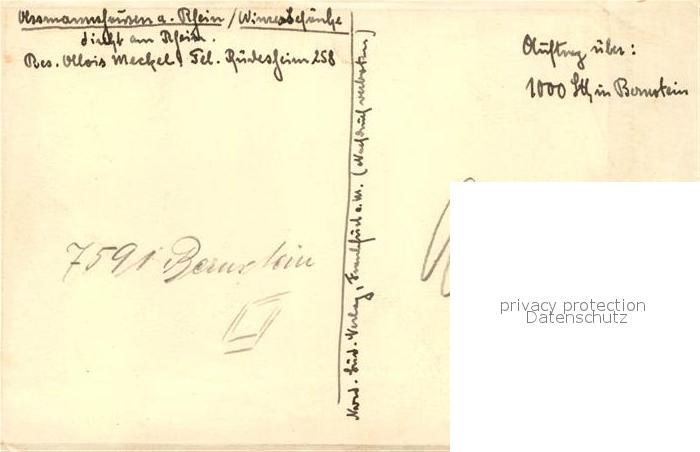 Assmannshausen a. Rhein / Winzerschänke
dicht am Rhein.
Bes. Alois Meckel / Tel. Rüdesheim 258
Nord-Süd-Verlag, Frankfurt a. M. (Nachdruck verboten)
Auftrag über:
1000 Stk in Bernstein
7591 Bernstein
II
privacy protection
Datenschutz